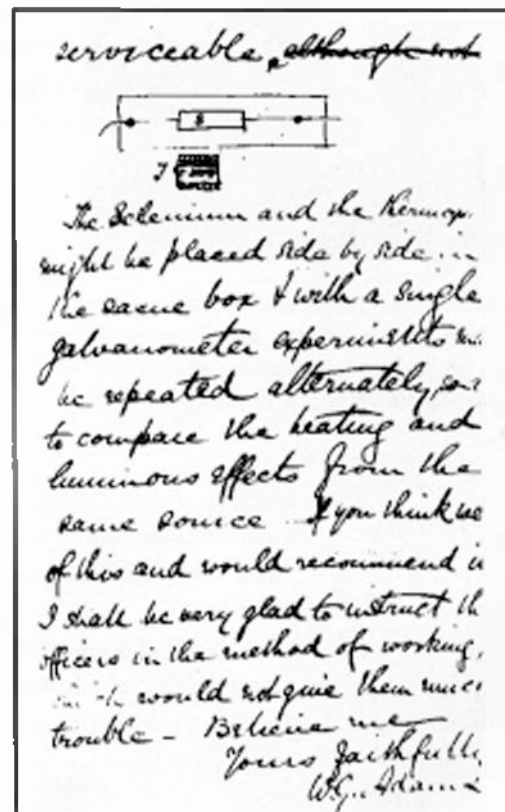 serviceable, although not
S
T
The Selenium and the Thermop.
might be placed side by side in
the same box & with a single
galvanometer experiments
be repeated alternately, so
to compare the heating and
luminous effects from the
same source. If you think we
of this and would recommend i
I shall be very glad to instruct th
officers in the method of working,
would not give them muc
trouble – Believe me
Yours faithfully
W.G. Adams